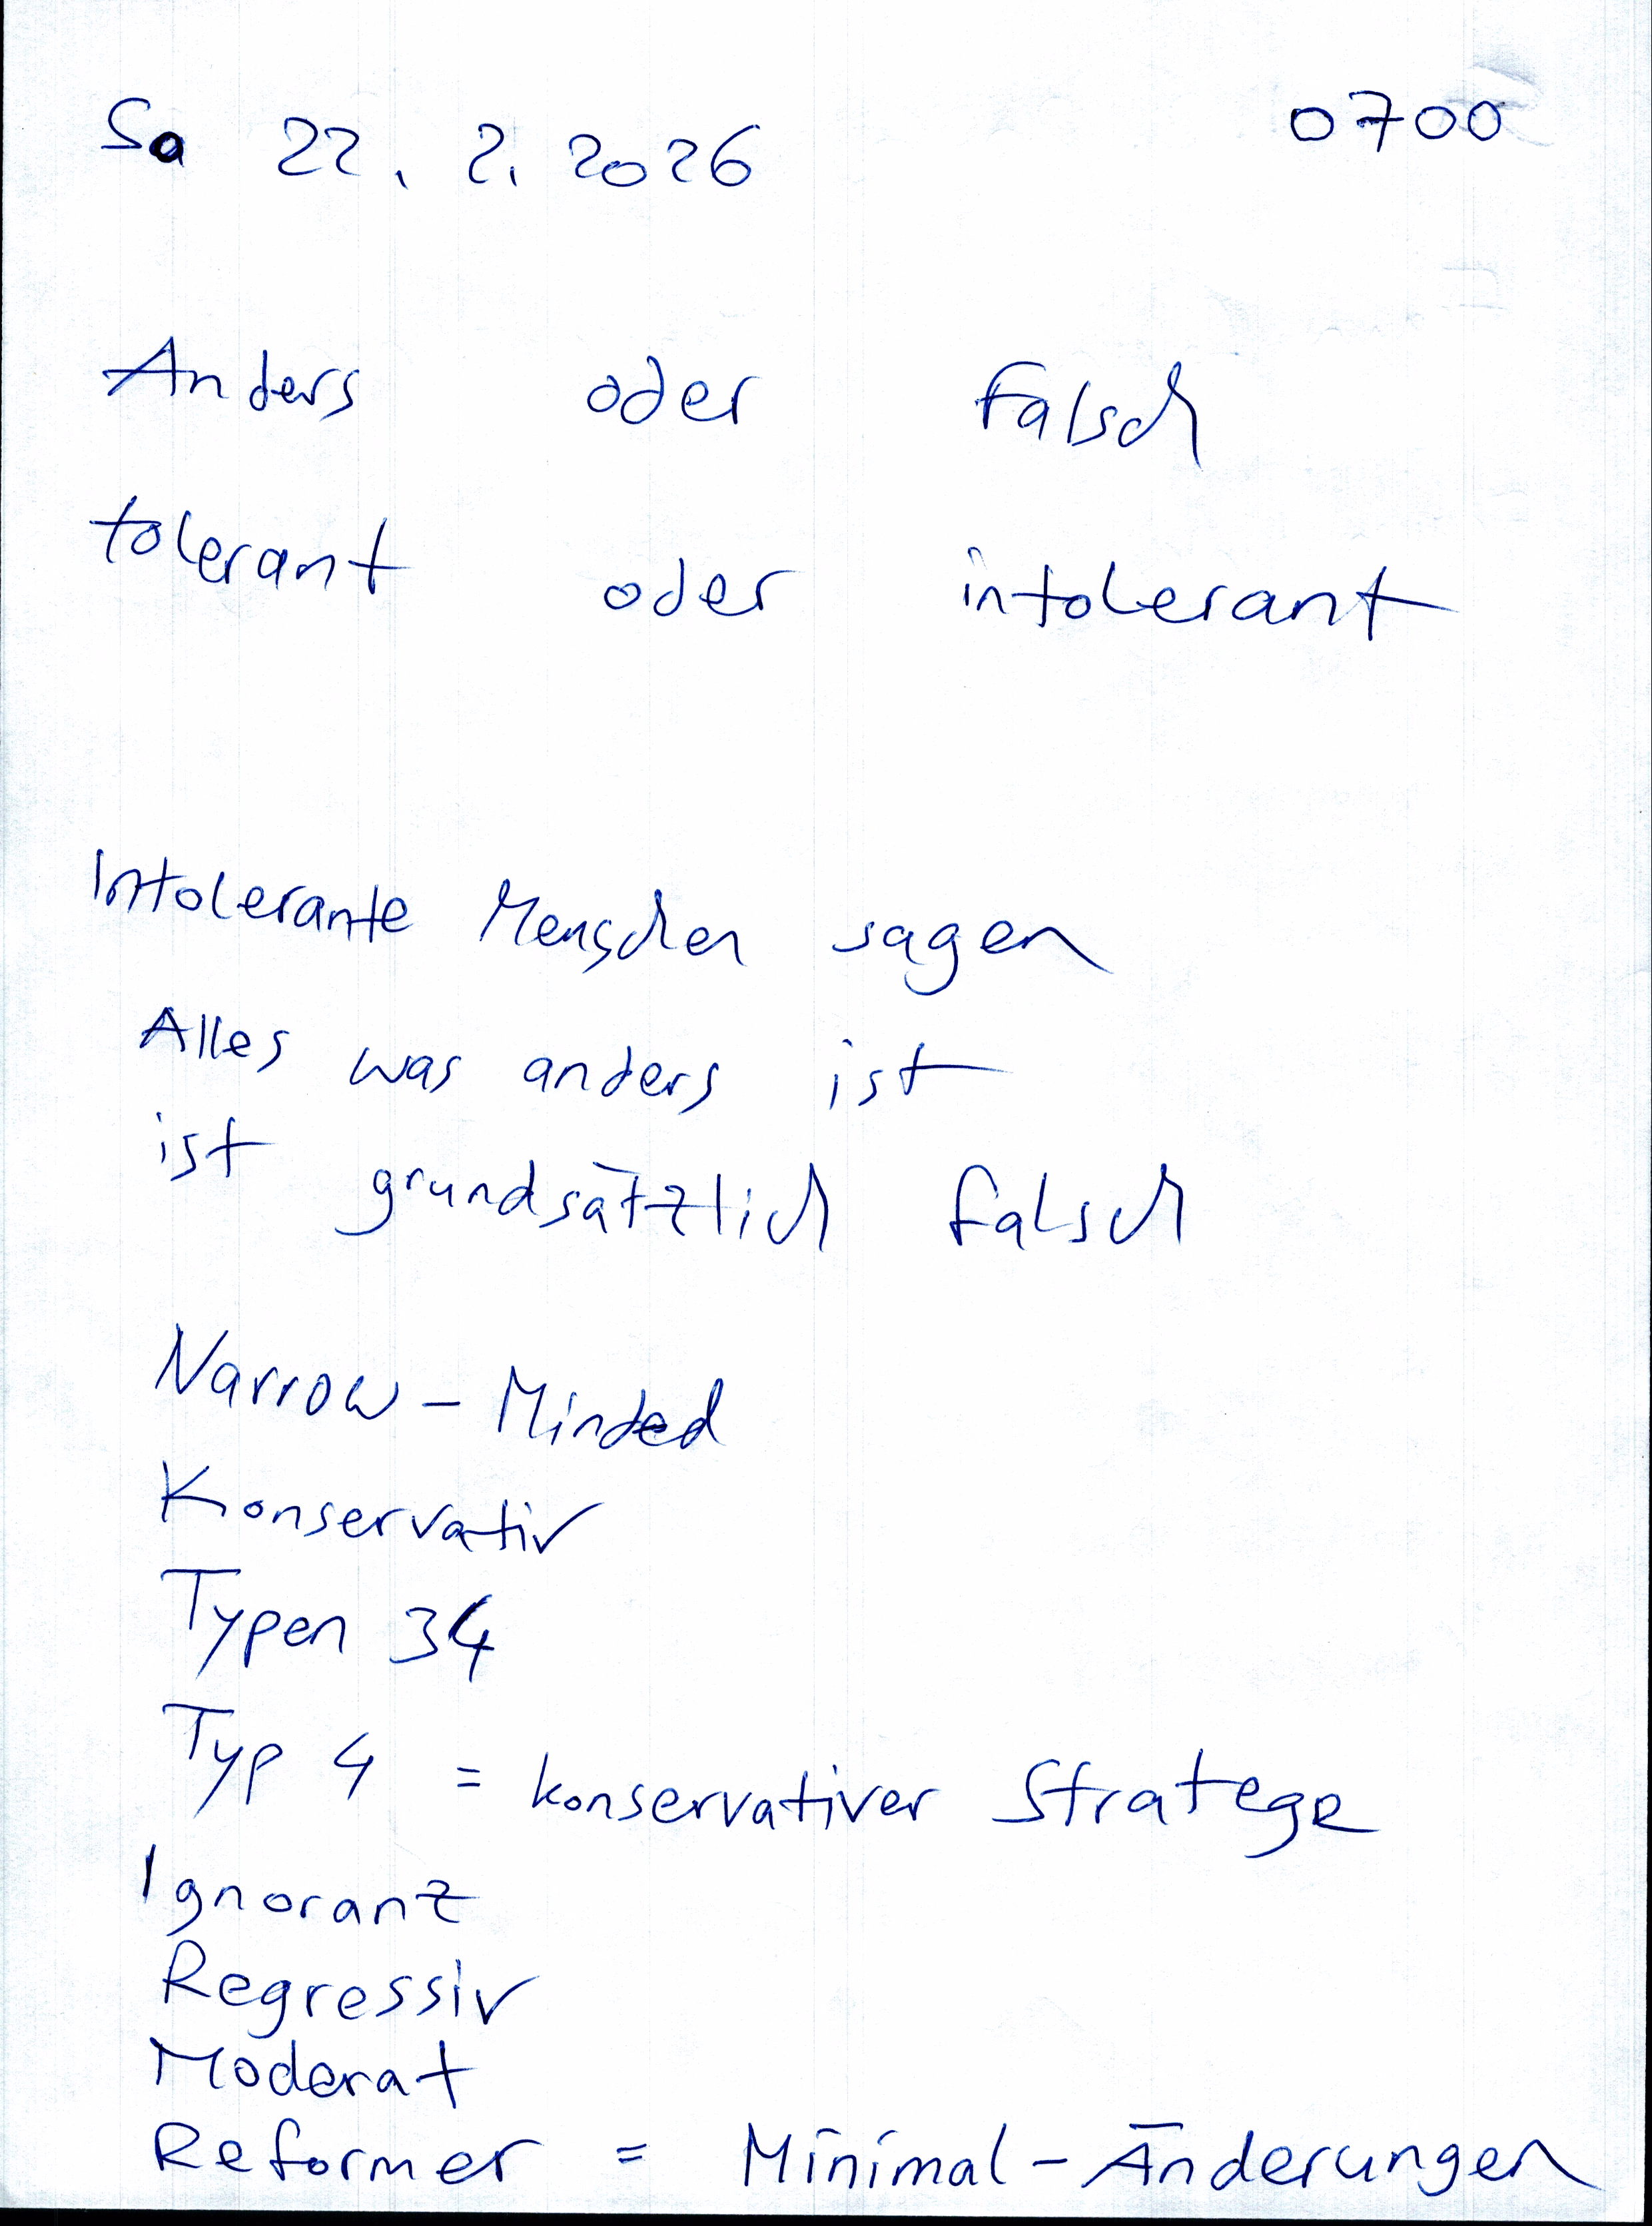 Sa 22. 2. 2026 0700
Anders oder falsch
tolerant oder intolerant
Intolerante Menschen sagen
Alles was anders ist
ist grundsätzlich falsch
Narrow-Minded
Konservativ
Typen 34
Typ 4 = konservativer Stratege
Ignorant
Regressiv
Moderat
Reformer = Minimal-Änderungen